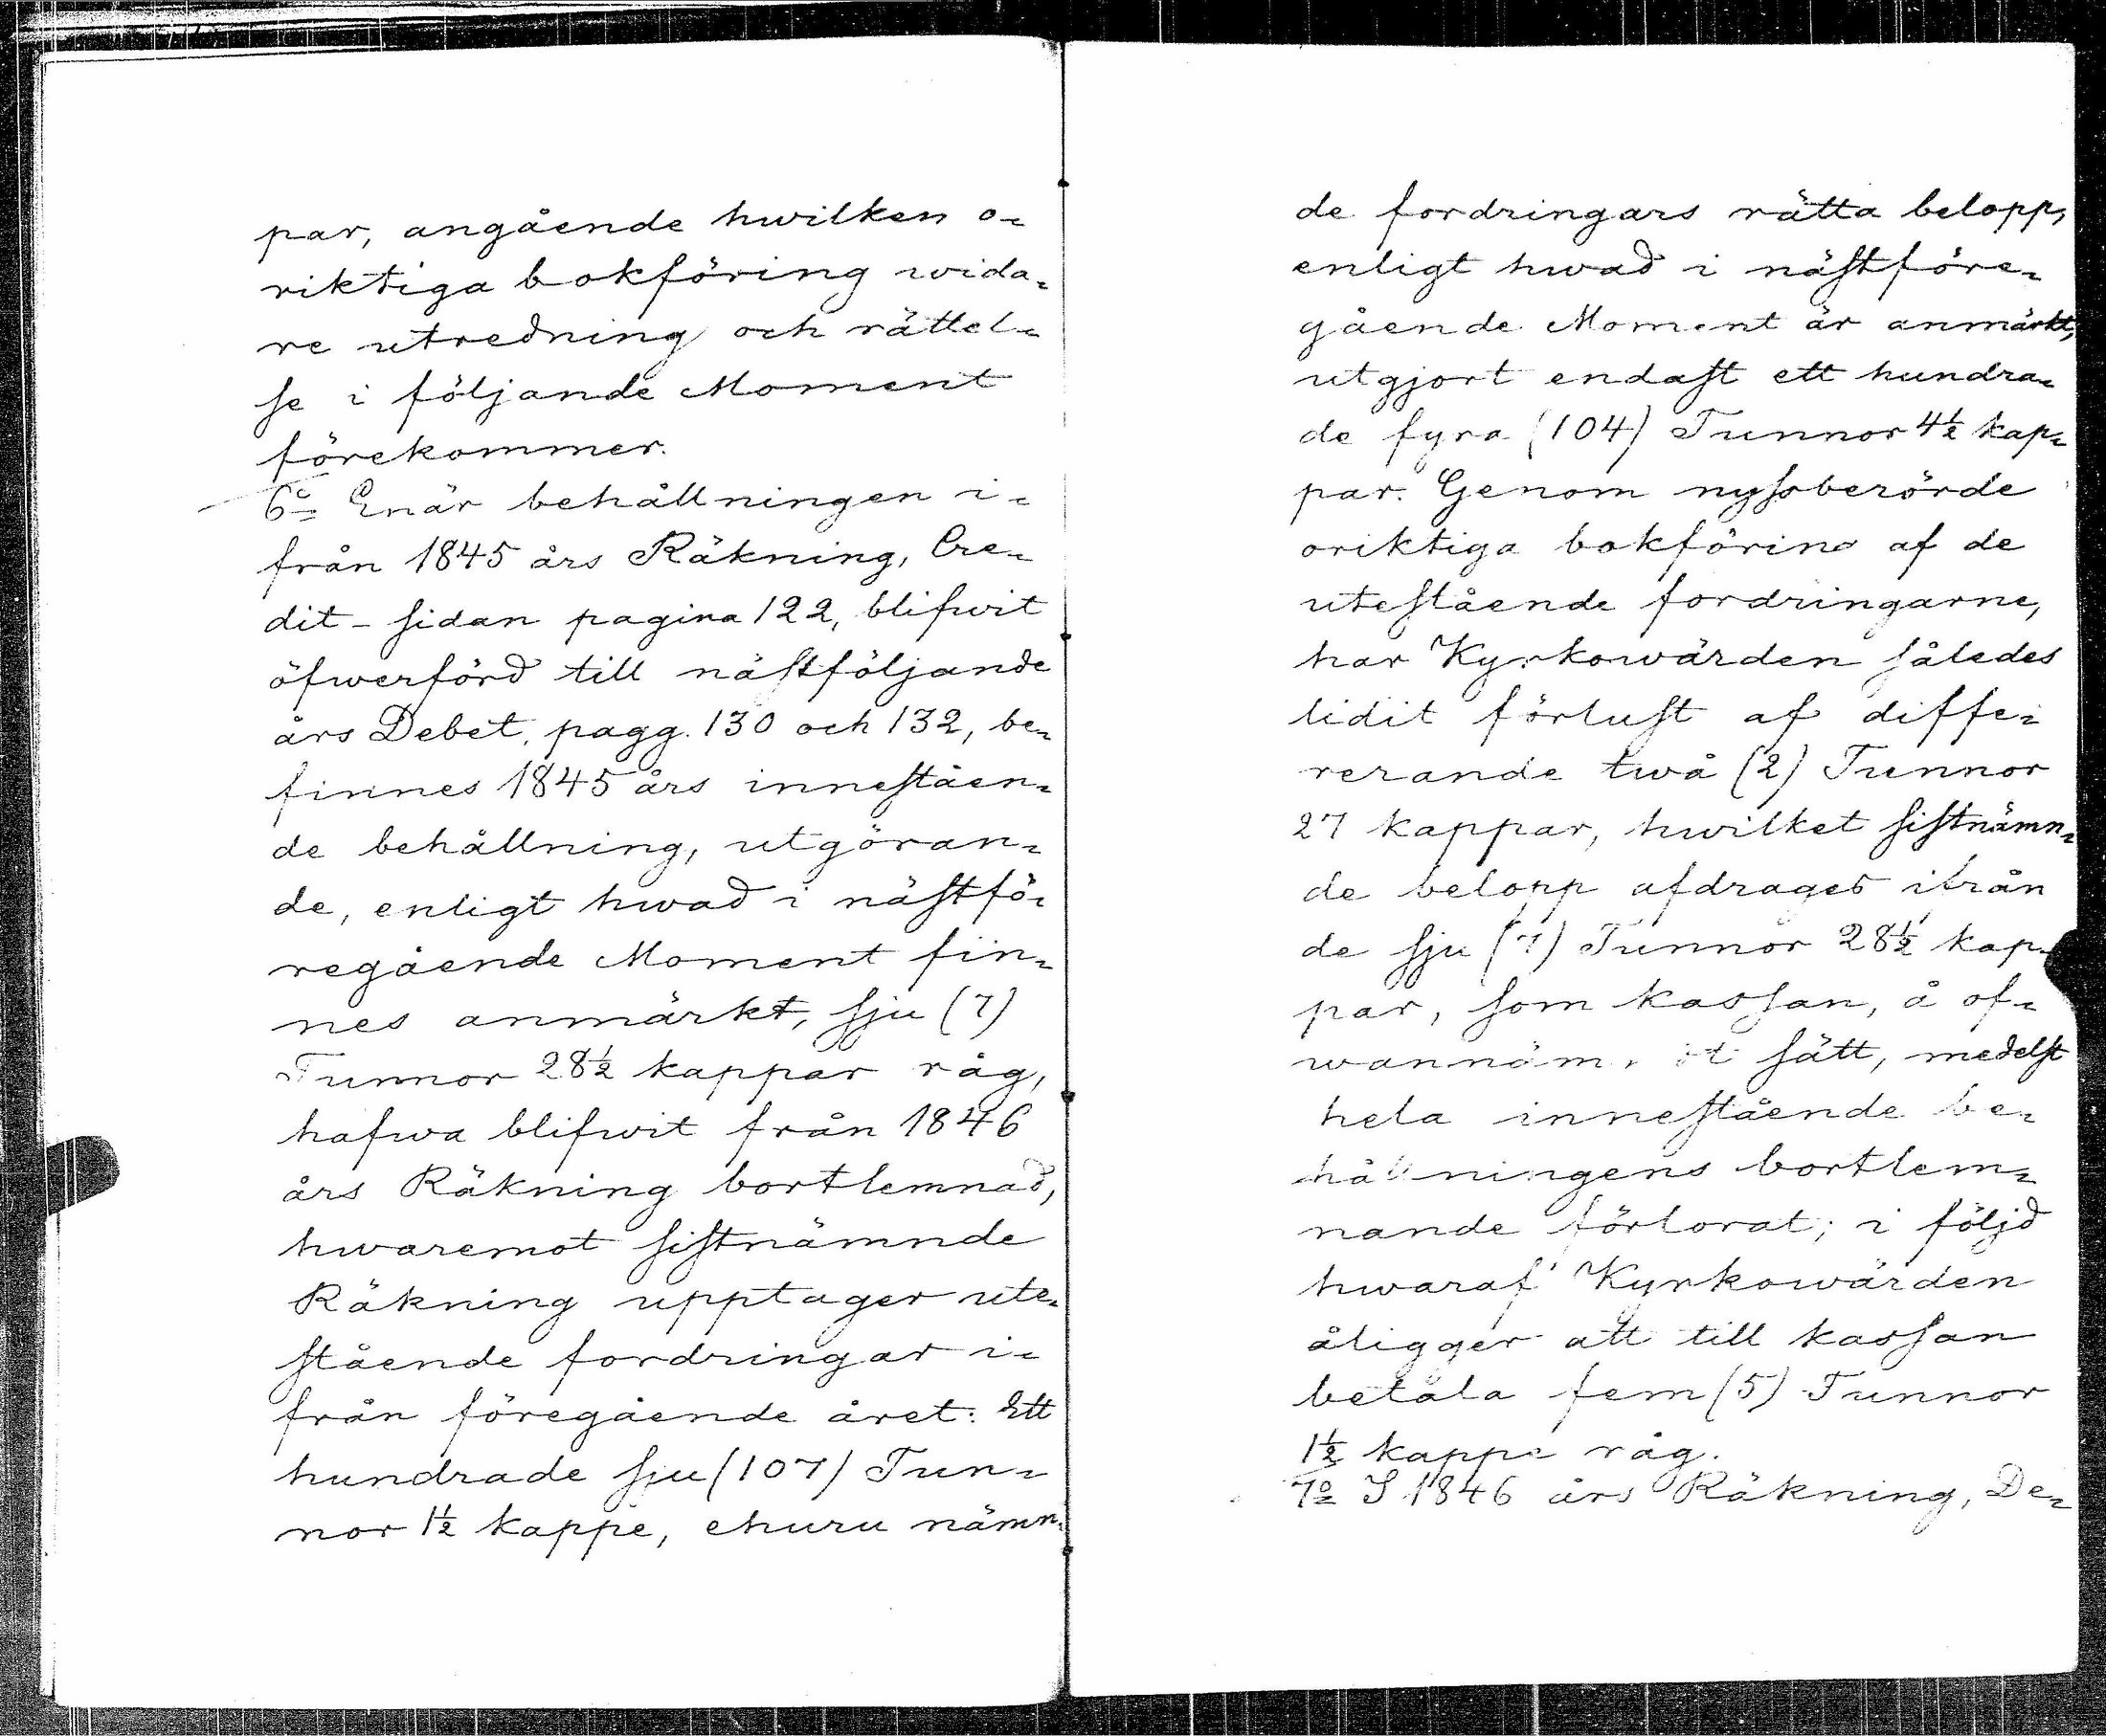 par, angående hwilken o-
riktiga bokföring wida-
re utredning och rättel-
se i följande Moment
förekommer.
6o Enär behållningen i-
från 1845 års Räkning, Cre-
dit-sidan pagina 122, blifwit
öfwerförd till nästföljande
års Debet, pagg. 130 och 132, be-
finnes 1845 års inneståen-
de behållning, utgöran-
de, enligt hwad i nästfö-
regående Moment fin-
nes anmärkt, sju (7)
Tunnor 28½ kappar råg,
hafwa blifwit från 1846
års Räkning bortlemnad,
hwaremot sistnämnde
Räkning upptager ute-
stående fordringar i-
från föregående året: Ett
hundrade sju (107) Tun-
nor 1½ kappe, ehuru nämn-
de fordringars rätta belopp,
enligt hwad i nästföre-
gående Moment är anmärkt,
utgjort endast ett hundra-
de fyra (104) Tunnor 4½ kap-
par. Genom nyssberörde
oriktiga bokföring af de
utestående fordringarne,
har Kyrkowärden således
lidit förlust af diffe-
rerande twå (2) Tunnor
27 kappar, hwilket sistnämn-
de belopp afdrages ifrån
de sju (7) Tunnor 28½ kap-
par, som kassan, å of-
wannämndt sätt, medelst
hela innestående be-
hållningens bortlem-
nande förlorat; i följd
hwaraf Kyrkowärden
åligger att till kassan
betala fem (5) Tunnor
1½ kappe råg.
7o I 1846 års Räkning, De-